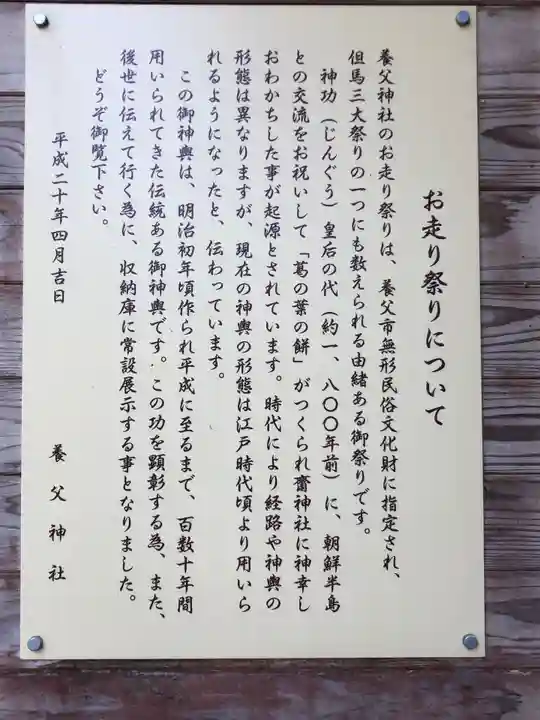 お走り祭りについて
養父神社のお走り祭りは、養父市無形民俗文化財に指定され、
但馬三大祭りの一つにも数えられる由緒ある御祭りです。
神功（じんぐう）皇后の代（約一、八〇〇年前）に、朝鮮半島
との交流をお祝いして「葛の葉の餅」がつくられ斎神社に神幸し
おわかちした事が起源とされています。時代により経路や神輿の
形態は異なりますが、現在の神輿の形態は江戸時代頃より用いら
れるようになったと、伝わっています。
この御神輿は、明治初年頃作られ平成に至るまで、百数十年間
用いられてきた伝統ある御神輿です。この功を顕彰する為、また、
後世に伝えて行く為に、収納庫に常設展示する事となりました。
どうぞ御覧下さい。
平成二十年四月吉日
養父神社